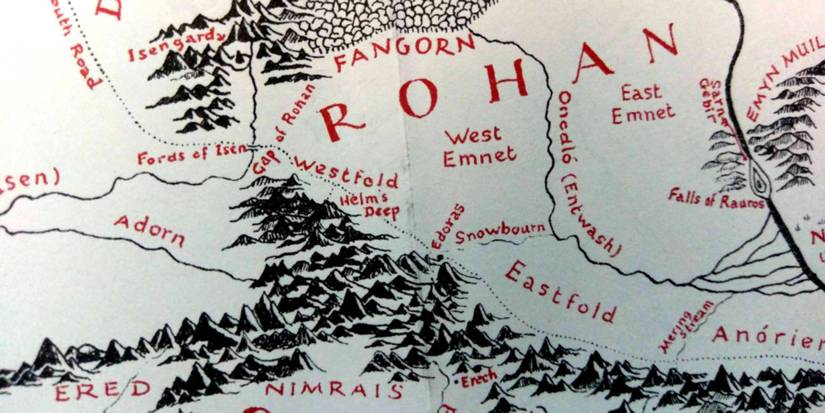 South Road
D
Isengard
FANGORN
ROHAN
EMYN MUIL
East
Emnet
Sarn
Gebir
Gap of Rohan
West
Emnet
Onodló (Entwash)
Fords of Isen
Westfold
Helm's
Deep
Falls of Rauros
Adorn
Edoras
Snowbourn
Eastfold
Mering
Stream
Anórien
ERED NIMRAIS
Erech